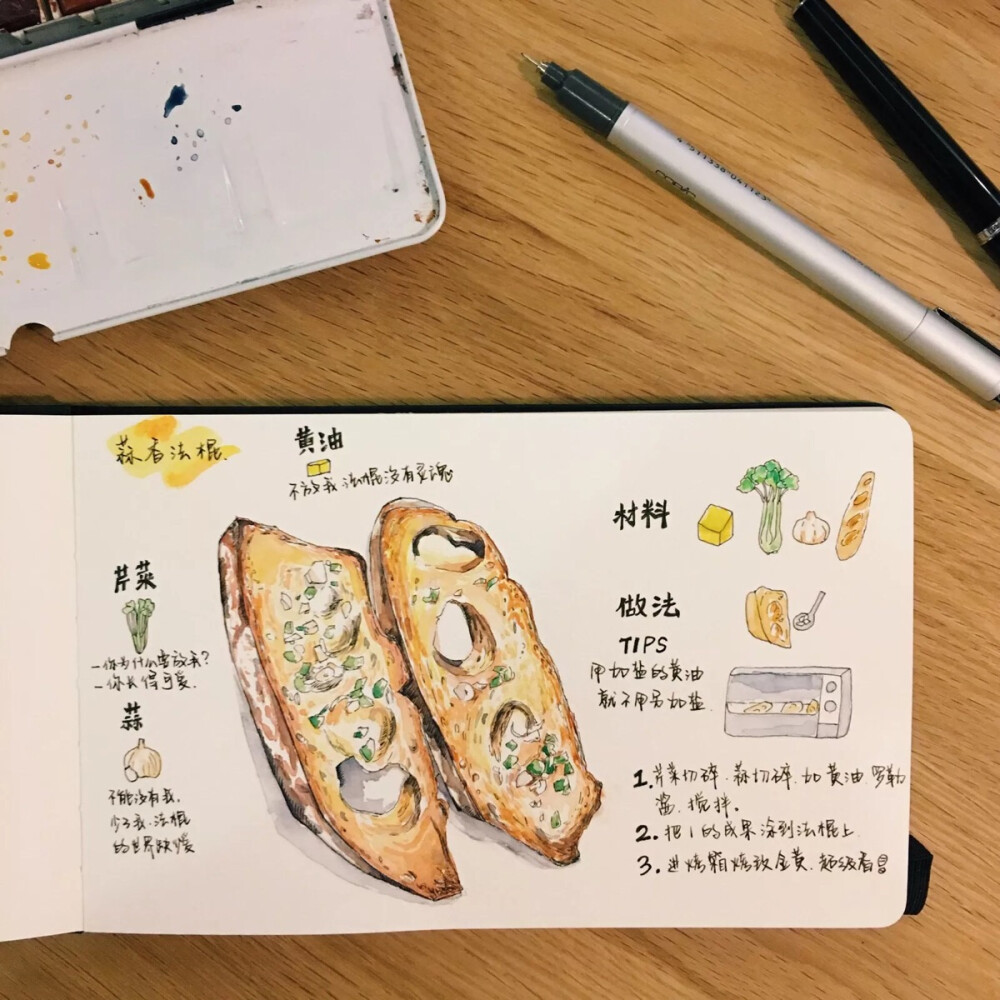 蒜香法棍.
黄油
不放我 法棍没有灵魂
芹菜
-你为什么要放我?
-你长得可爱.
蒜
不能没有我.
少了我.法棍
的世界缺爱
材料
做法
TIPS
用加盐的黄油
就不用另加盐.
1.芹菜切碎.蒜切碎.加黄油 罗勒
酱.搅拌.
2.把1的成果涂到法棍上.
3.进烤箱烤致金黄.超级香
copic